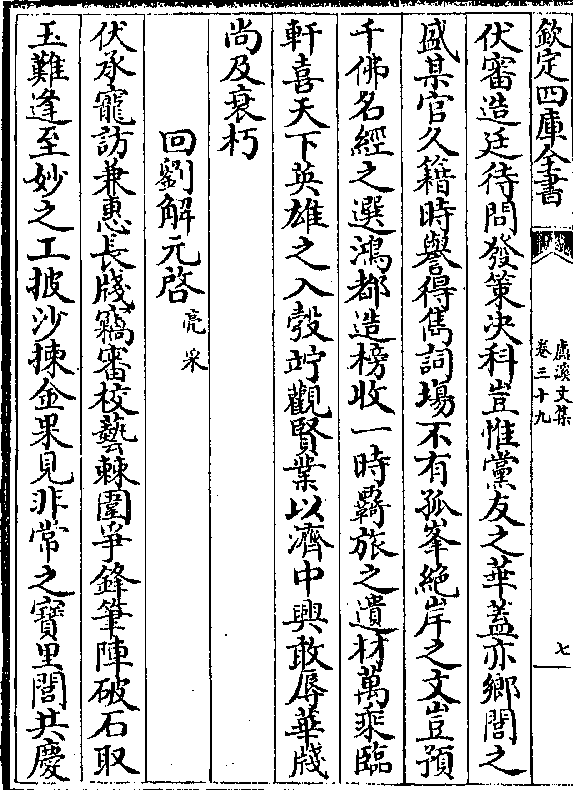 欽定四庫全書
盧溪文集
卷三十九
七
伏審造廷待問發策決科豈惟黨友之華蓋亦鄉閭之
盛某官久籍時譽得雋詞場不有孤峯絶岸之文豈預
千佛名經之選鴻都造榜收一時覊旅之遺材萬乘臨
軒喜天下英雄之入彀竚觀賢業以濟中興敢辱華牋
尚及衰朽
回劉解元啓亮采
伏承寵訪兼惠長牋竊審校藝棘圍爭鋒筆陣破石取
玉難逢至妙之工披沙揀金果見非常之寶里閭共慶